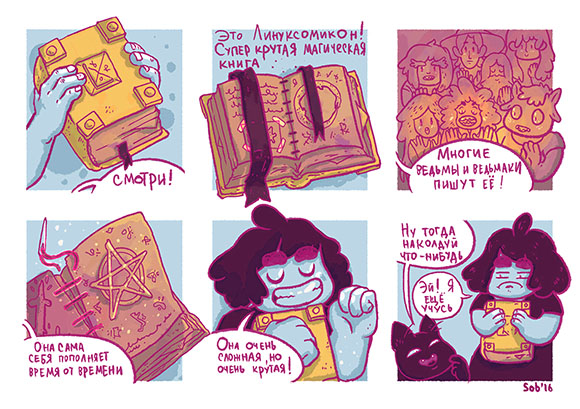 Смотри!
Это Линуксомикон!
Супер крутая магическая
книга!
Многие
ведьмы и ведьмаки
пишут её!
Она сама
себя пополняет
время от времени
Она очень
сложная, но
очень крутая!
Ну тогда
наколдуй
что-нибудь
Эй! Я
ещё
учусь
Sob'16